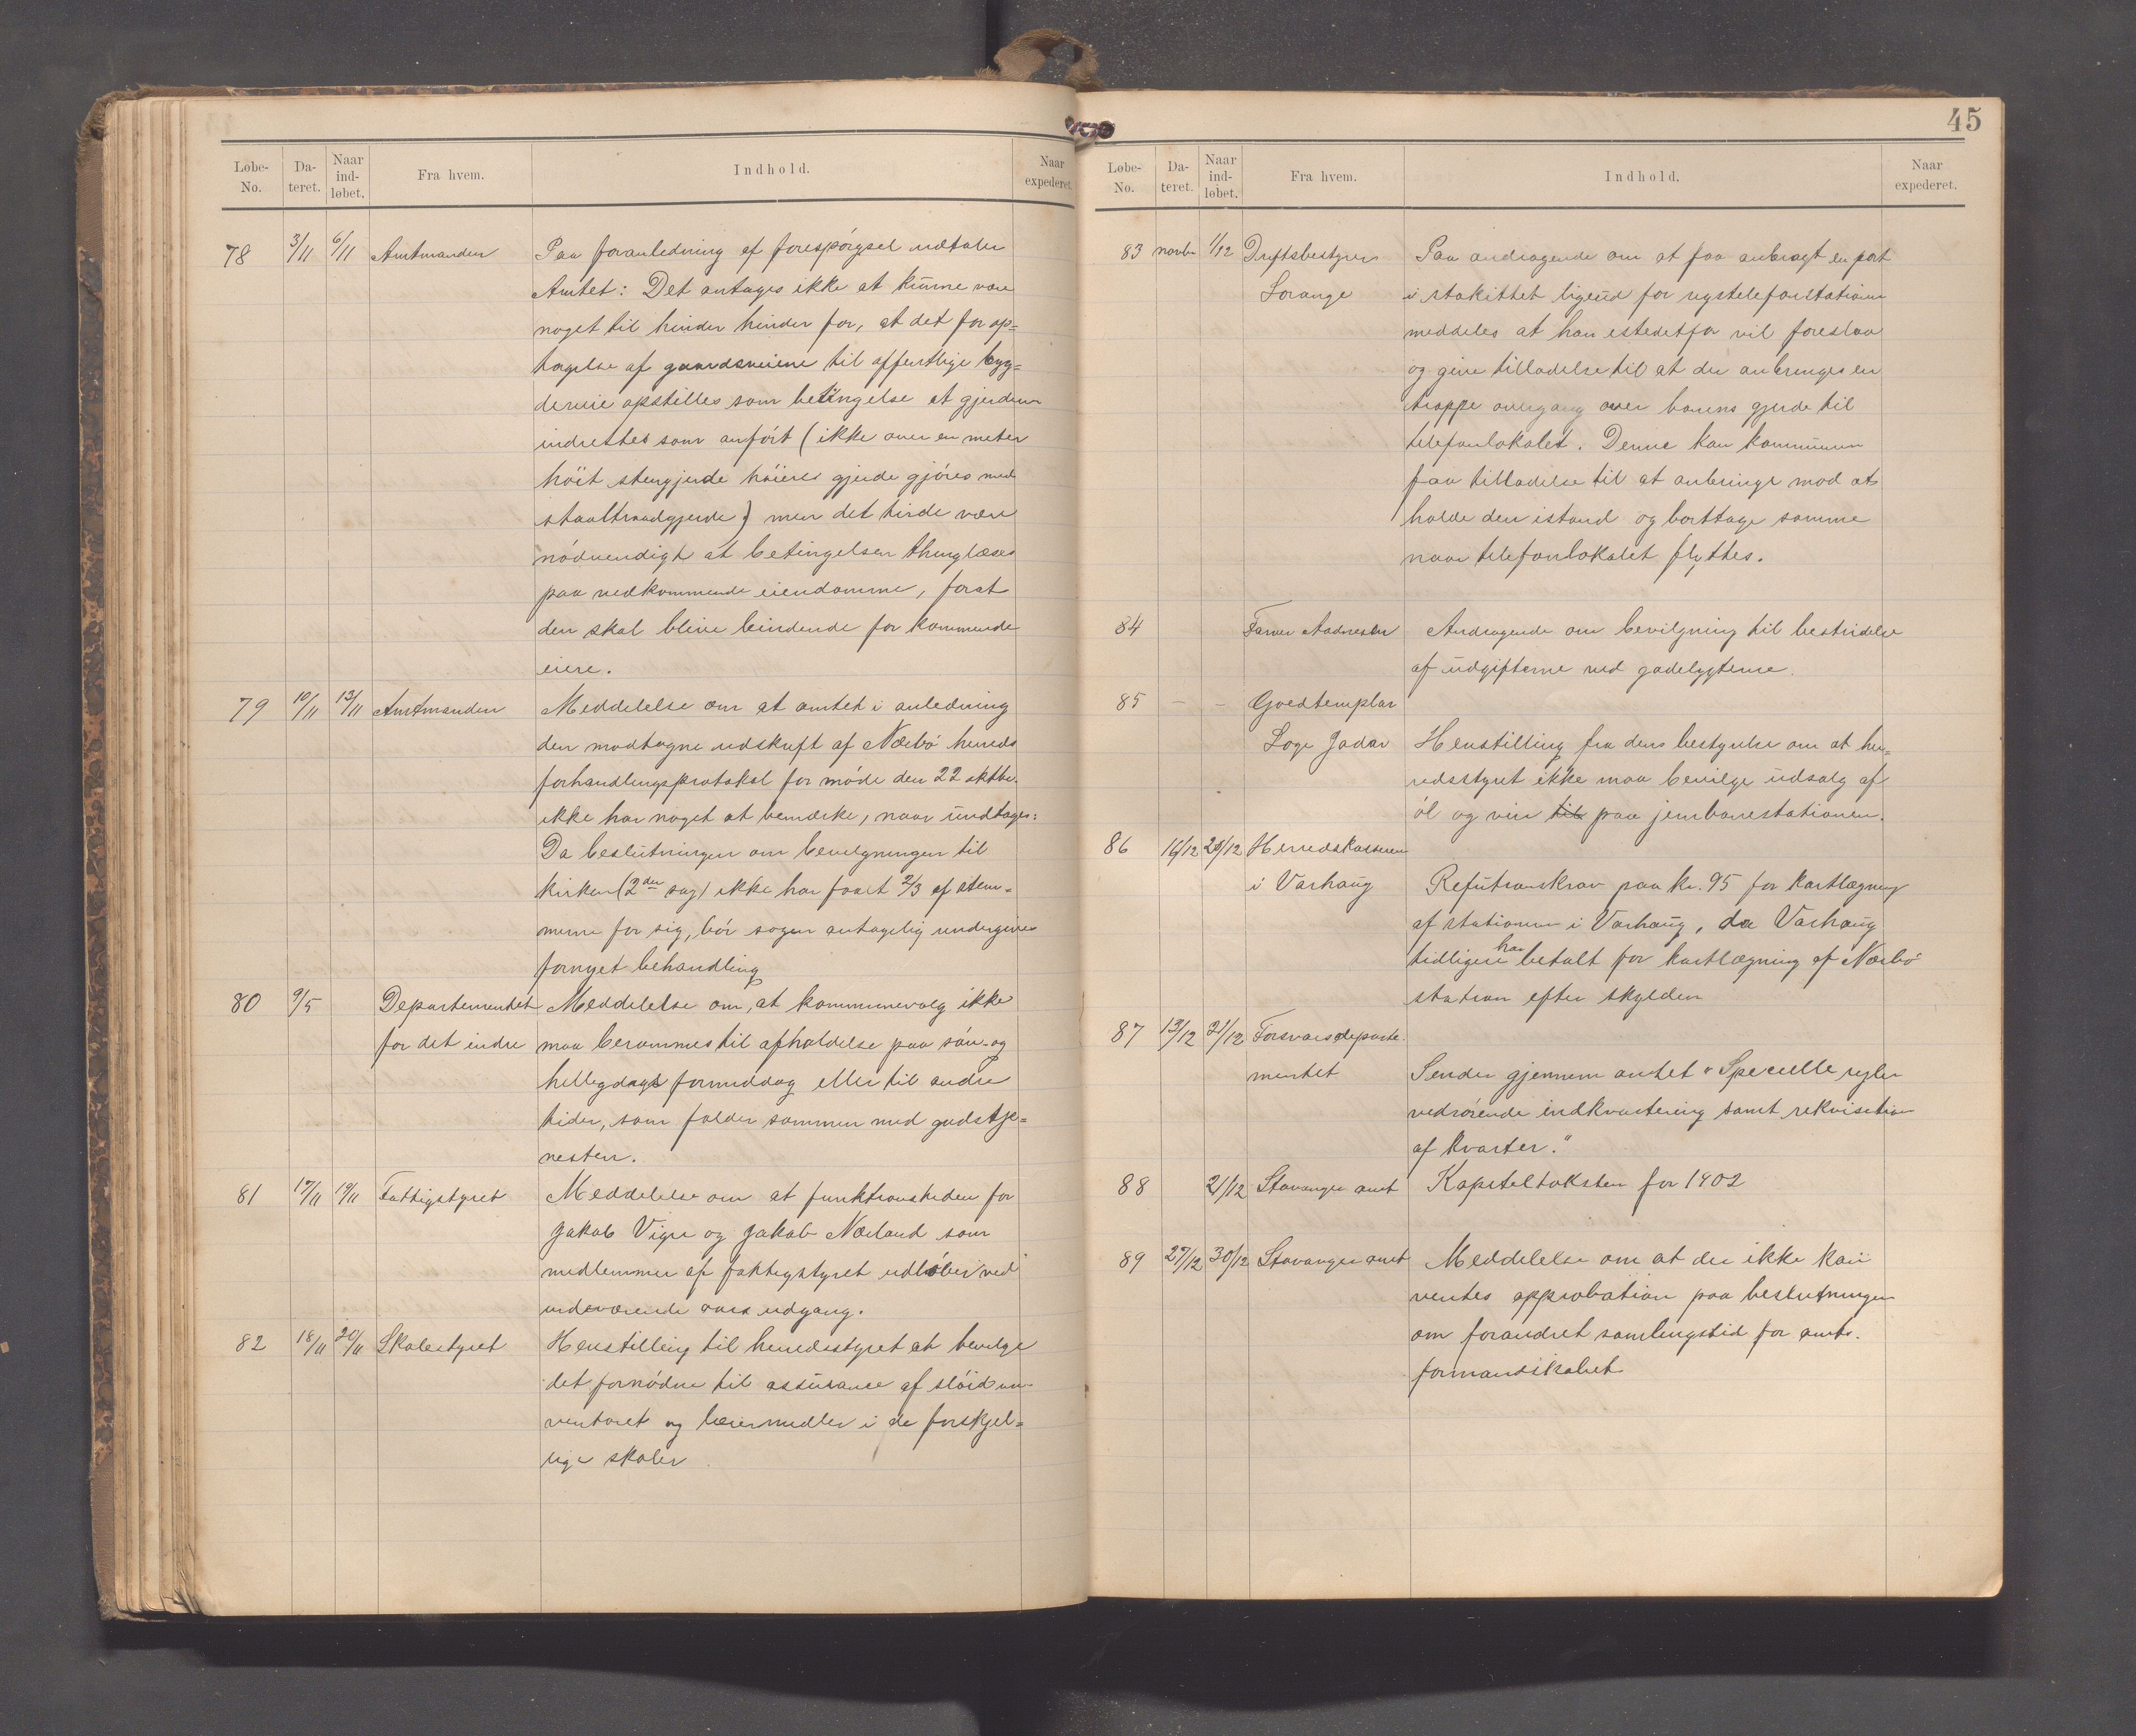 Løbe-No. Da-teret. Naar ind-løbet. Fra hvem. Indhold. Naar expederet.
78 3/11 6/11 Amtmanden Paa foranledning af forespørgsel udtaler
Amtet: Det antages ikke at kunne være
noget til hinder hinder for, at det for op=
tagelse af gaardsveiene til offentlige byg=
deveie opstilles som betingelse at gjerderne
indrettes som anført (ikke over en meter
høit stengjerde høiere gjerde gjøres med
staaltraadgjerde) men det turde være
nødvendigt at betingelsen thinglæses
paa vedkommende eiendomme, forat
den skal blive bindende for kommende
eiere.
79 10/11 13/11 Amtmanden Meddelelse om at amtet i anledning
den modtagne udskrift af Nærbø herreds
forhandlingsprotokol for møde den 22 oktbr.
ikke har noget at bemærke, naar undtages:
Da beslutningen om bevilgningen til
kirken (2den sag) ikke har faaet 2/3 af stem=
merne for sig, bør sagen antagelig undergives
fornyet behandling
80 9/5 Departementet Meddelelse om, at kommunevalg ikke
for det indre maa berammes til afholdelse paa søn- og
helligdags formiddag eller til andre
tider, som falder sammen med gudstje=
nesten.
81 17/11 19/11 Fattigstyret Meddelelse om at funktionstiden for
Jakob Vigre og Jakob Nærland som
medlemmer af fattigstyret udløber ved
indeværende aars udgang.
82 18/11 20/11 Skolestyret Henstilling til herredsstyret at bevilge
det fornødne til assurance af sløidin-
ventaret og læremidler i de forskjel=
lige skoler.
45
Løbe-No. Da-teret. Naar ind-løbet. Fra hvem. Indhold. Naar expederet.
83 novbr 1/12 Driftsbestyrer Paa andragende om at faa anbragt en port
Lorange i stakittet ligeud for rigstelefonstationen
meddeles at han istedetfor vil foreslaa
og give tilladelse til at der anbringes en
trappe overgang over banens gjerde til
telefonlokalet. Denne kan kommunen
faa tilladelse til at anbringe mod at
holde den istand og borttage samme
naar telefonlokalet flyttes.
84 Farver Aadnesen Andragende om bevilgning til bestridelse
af udgifterne ved gadelygterne.
85 - - Goodtemplar
Loge Jadar Henstilling fra dens bestyrelse om at her=
redsstyret ikke maa bevilge udsalg af
øl og vin til paa jernbanestationen.
86 16/12 20/12 Herredskasseren
i Varhaug Refutionskrav paa kr. 95 for kartlægning
af stationen i Varhaug, da Varhaug
tidligere har betalt for kartlægning af Nærbø
station efter skylden
87 13/12 21/12 Forsvarsdeparte-
mentet Sender gjennem amtet "Specielle regler
vedrørende indkvartering samt rekvisition
af kvarter."
88 21/12 Stavanger amt Kapiteltaksten for 1902
89 27/12 30/12 Stavanger amt Meddelelse om at der ikke kan
ventes approbation paa beslutningen
om forandret samlingstid for amts-
formandskabet